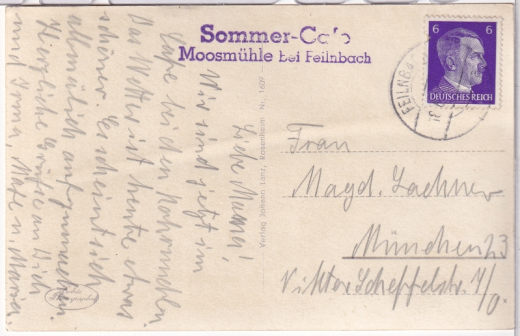 Sommer-Cafe
Moosmühle bei Feilnbach
6 6
DEUTSCHES REICH
FEILNBA
Liebe Mama!
Wir sind jetzt im
Cafe bei den
Das Wetter ist heute etwas
schöner. Es scheint sich
allmählich aufzumachen.
Herzliche Grüße an Dich
und Irma, u. Maria,
Verlag Johann Lanz, Rosenheim Nr. 1609
Frau
Magd. Lachner
München 23
Viktor Scheffelstr.